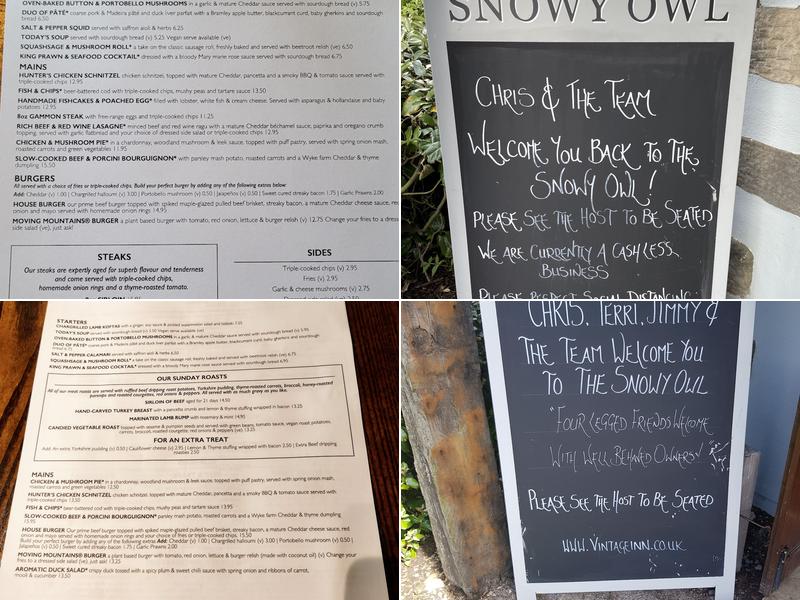 OVEN-BAKED BUTTON & PORTOBELLO MUSHROOMS in a garlic & mature Cheddar sauce served with sourdough bread (v) 5.75
DUO OF PÂTÉ* coarse pork & Madeira pâté and duck liver parfait with a Bramley apple butter, blackcurrant curd, baby gherkins and sourdough
bread 6.50
SALT & PEPPER SQUID served with saffron aioli & herbs 6.25
TODAY'S SOUP served with sourdough bread (v) 5.25 Vegan serve available (ve)
SQUASHSAGE & MUSHROOM ROLL* a take on the classic sausage roll, freshly baked and served with beetroot relish (ve) 6.50
KING PRAWN & SEAFOOD COCKTAIL* dressed with a bloody Mary marie rose sauce served with sourdough bread 6.75
MAINS
HUNTER'S CHICKEN SCHNITZEL chicken schnitzel, topped with mature Cheddar, pancetta and a smoky BBQ & tomato sauce served with
triple-cooked chips 12.95
FISH & CHIPS* beer-battered cod with triple-cooked chips, mushy peas and tartare sauce 13.50
HANDMADE FISHCAKES & POACHED EGG* filled with lobster, white fish & cream cheese. Served with asparagus & hollandaise and baby
potatoes 12.95
8oz GAMMON STEAK with free-range eggs and triple-cooked chips 11.25
RICH BEEF & RED WINE LASAGNE* minced beef and red wine ragu with a mature Cheddar béchamel sauce, paprika and oregano crumb
topping, served with garlic flatbread and your choice of dressed side salad or triple-cooked chips 12.95
CHICKEN & MUSHROOM PIE* in a chardonnay, woodland mushroom & leek sauce, topped with puff pastry, served with spring onion mash,
roasted carrots and green vegetables 11.95
SLOW-COOKED BEEF & PORCINI BOURGUIGNON* with parsley mash potato, roasted carrots and a Wyke farm Cheddar & thyme
dumpling 15.50
BURGERS
All served with a choice of fries or triple-cooked chips. Build your perfect burger by adding any of the following extras below
Add: Cheddar (v) 1.00 | Chargrilled halloumi (v) 3.00 | Portobello mushroom (v) 0.50 | Jalapeños (v) 0.50 | Sweet cured streaky bacon 1.75 | Garlic Prawns 2.00
HOUSE BURGER our prime beef burger topped with spiked maple-glazed pulled beef brisket, streaky bacon, a mature Cheddar cheese sauce, red
onion and mayo served with homemade onion rings 14.95
MOVING MOUNTAINS® BURGER a plant based burger with tomato, red onion, lettuce & burger relish (v) 12.75 Change your fries to a dressed
side salad (ve), just ask!
STEAKS
Our steaks are expertly aged for superb flavour and tenderness
and come served with triple-cooked chips,
homemade onion rings and a thyme-roasted tomato.
SIDES
Triple-cooked chips (v) 2.95
Fries (v) 2.95
Garlic & cheese mushrooms (v) 2.75
SNOWY OWL
CHRIS & THE TEAM
WELCOME YOU BACK TO THE
SNOWY OWL!
PLEASE SEE THE HOST TO BE SEATED
WE ARE CURRENTLY A CASH LESS
BUSINESS
PLEASE RESPECT SOCIAL DISTANCING
STARTERS
CHARGRILLED LAMB KOFTAS with a ginger, soy
TODAY'S SOUP served with sourdough bread (v) 5.50 Vegan serve available (ve)
OVEN-BAKED BUTTON & PORTOBELLO MUSHROOMS in a garlic & mature Cheddar sauce served with sourdough bread (v) 5.95
DUO OF PÂTÉ* coarse pork & Madeira pâté and duck liver parfait with a Bramley apple butter, blackcurrant curd, baby gherkins and sourdough
bread 6.75
SALT & PEPPER CALAMARI served with saffron aioli & herbs 6.50
SQUASHSAGE & MUSHROOM ROLL* a take on the classic sausage roll, freshly baked and served with beetroot relish (ve) 6.75
KING PRAWN & SEAFOOD COCKTAIL* dressed with a bloody Mary marie rose sauce served with sourdough bread 6.95
OUR SUNDAY ROASTS
All of our meat roasts are served with ruffled beef dripping roast potatoes, Yorkshire pudding, thyme-roasted carrots, broccoli, honey-roasted
parsnips and roasted courgettes, red onions & peppers. All served with as much gravy as you like.
SIRLOIN OF BEEF aged for 21 days 14.50
HAND-CARVED TURKEY BREAST with a pancetta crumb and lemon & thyme stuffing wrapped in bacon 13.25
MARINATED LAMB RUMP with rosemary & mint 14.95
CANDIED VEGETABLE ROAST topped with sesame & pumpkin seeds and served with green beans, tomato sauce, vegan roast potatoes,
carrots, broccoli, roasted courgette, red onions & peppers (ve) 13.25
FOR AN EXTRA TREAT
Add: An extra Yorkshire pudding (v) 0.50 | Cauliflower cheese (v) 2.95 | Lemon & Thyme stuffing wrapped with bacon 2.50 | Extra Beef dripping
roasties 2.50
MAINS
CHICKEN & MUSHROOM PIE* in a chardonnay, woodland mushroom & leek sauce, topped with puff pastry, served with spring onion mash,
roasted carrots and green vegetables 12.50
HUNTER'S CHICKEN SCHNITZEL chicken schnitzel, topped with mature Cheddar, pancetta and a smoky BBQ & tomato sauce served with
triple-cooked chips 13.50
FISH & CHIPS* beer-battered cod with triple-cooked chips, mushy peas and tartare sauce 13.95
SLOW-COOKED BEEF & PORCINI BOURGUIGNON* parsley mash potato, roasted carrots and a Wyke Farm Cheddar & thyme dumpling
15.95
HOUSE BURGER Our prime beef burger topped with spiked maple-glazed pulled beef brisket, streaky bacon, a mature Cheddar cheese sauce, red
onion and mayo served with homemade onion rings and your choice of fries or triple-cooked chips. 15.50
Build your perfect burger by adding any of the following extras Add: Cheddar (v) 1.00 | Chargrilled halloumi (v) 3.00 | Portobello mushroom (v) 0.50 |
Jalapeños (v) 0.50 | Sweet cured streaky bacon 1.75 | Garlic Prawns 2.00
MOVING MOUNTAINS® BURGER a plant based burger with tomato, red onion, lettuce & burger relish (made with coconut oil) (v) Change your
fries to a dressed side salad (ve), just ask! 13.25
AROMATIC DUCK SALAD* crispy duck tossed with a spicy plum & sweet chilli sauce with spring onion and ribbons of carrot,
mooli & cucumber 13.50
CHRIS, TERRI, JIMMY &
THE TEAM WELCOME YOU
TO THE SNOWY OWL
"FOUR LEGGED FRIENDS WELCOME
WITH WELL BEHAVED OWNERS"
PLEASE SEE THE HOST TO BE SEATED
WWW.VINTAGEINN.CO.UK